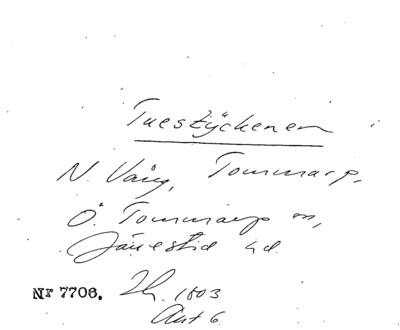 Tuestyckenen
N. Vång, Tommarp,
Ö. Tommarp sn,
Järrestad hd.
Nr 7706. Th. 1803
Akt 6